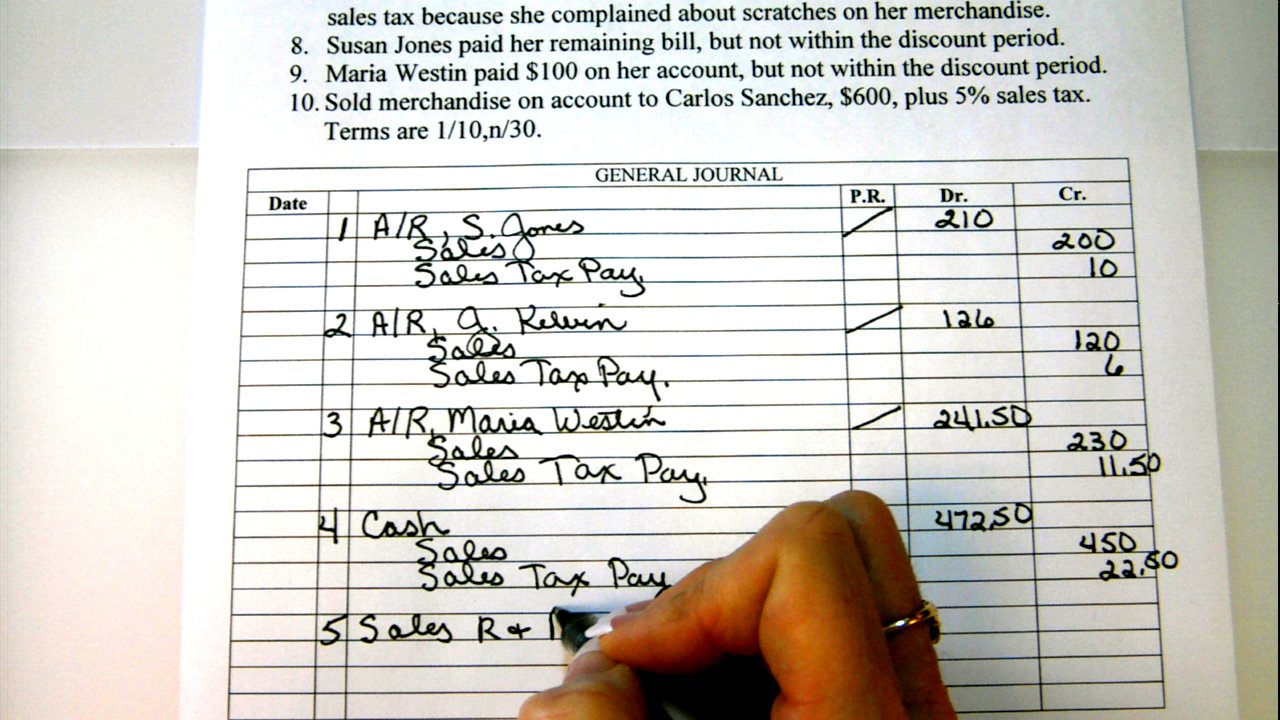 sales tax because she complained about scratches on her merchandise.
8. Susan Jones paid her remaining bill, but not within the discount period.
9. Maria Westin paid $100 on her account, but not within the discount period.
10. Sold merchandise on account to Carlos Sanchez, $600, plus 5% sales tax.
Terms are 1/10,n/30.
GENERAL JOURNAL
Date P.R. Dr. Cr.
1 A/R, S. Jones 210
Sales 200
Sales Tax Pay. 10
2 A/R, J. Kelvin 126
Sales 120
Sales Tax Pay. 6
3 A/R, Maria Westin 241.50
Sales 230
Sales Tax Pay. 11.50
4 Cash 472.50
Sales 450
Sales Tax Pay 22.50
5 Sales R +